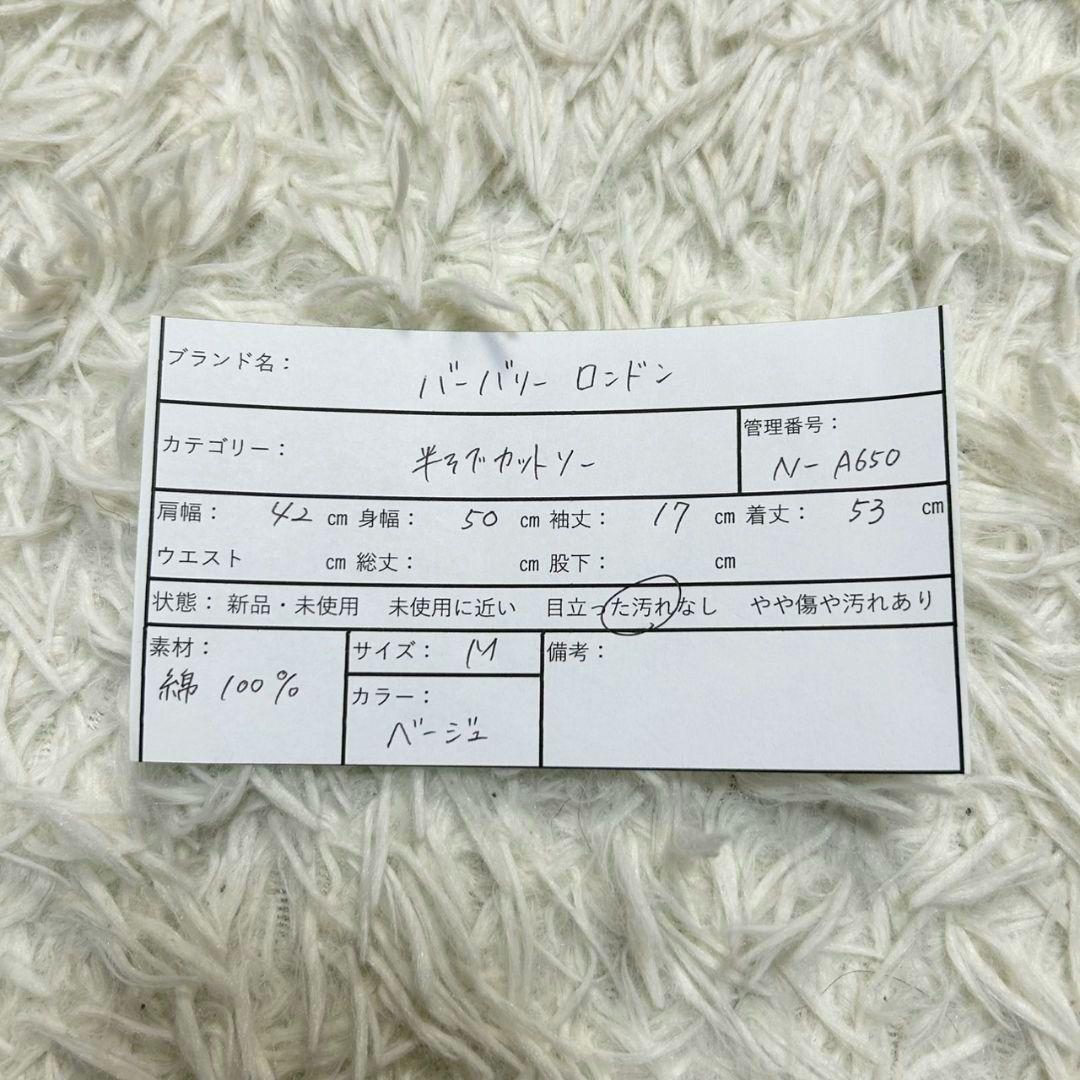 ブランド名： バーバリー ロンドン
カテゴリー： 半そでカットソー
管理番号： N-A650
肩幅： 42 cm 身幅： 50 cm 袖丈： 17 cm 着丈： 53 cm
ウエスト cm 総丈： cm 股下： cm
状態： 新品・未使用 未使用に近い 目立った汚れなし やや傷や汚れあり
素材： サイズ： M 備考：
綿 100%
カラー：
ベージュ